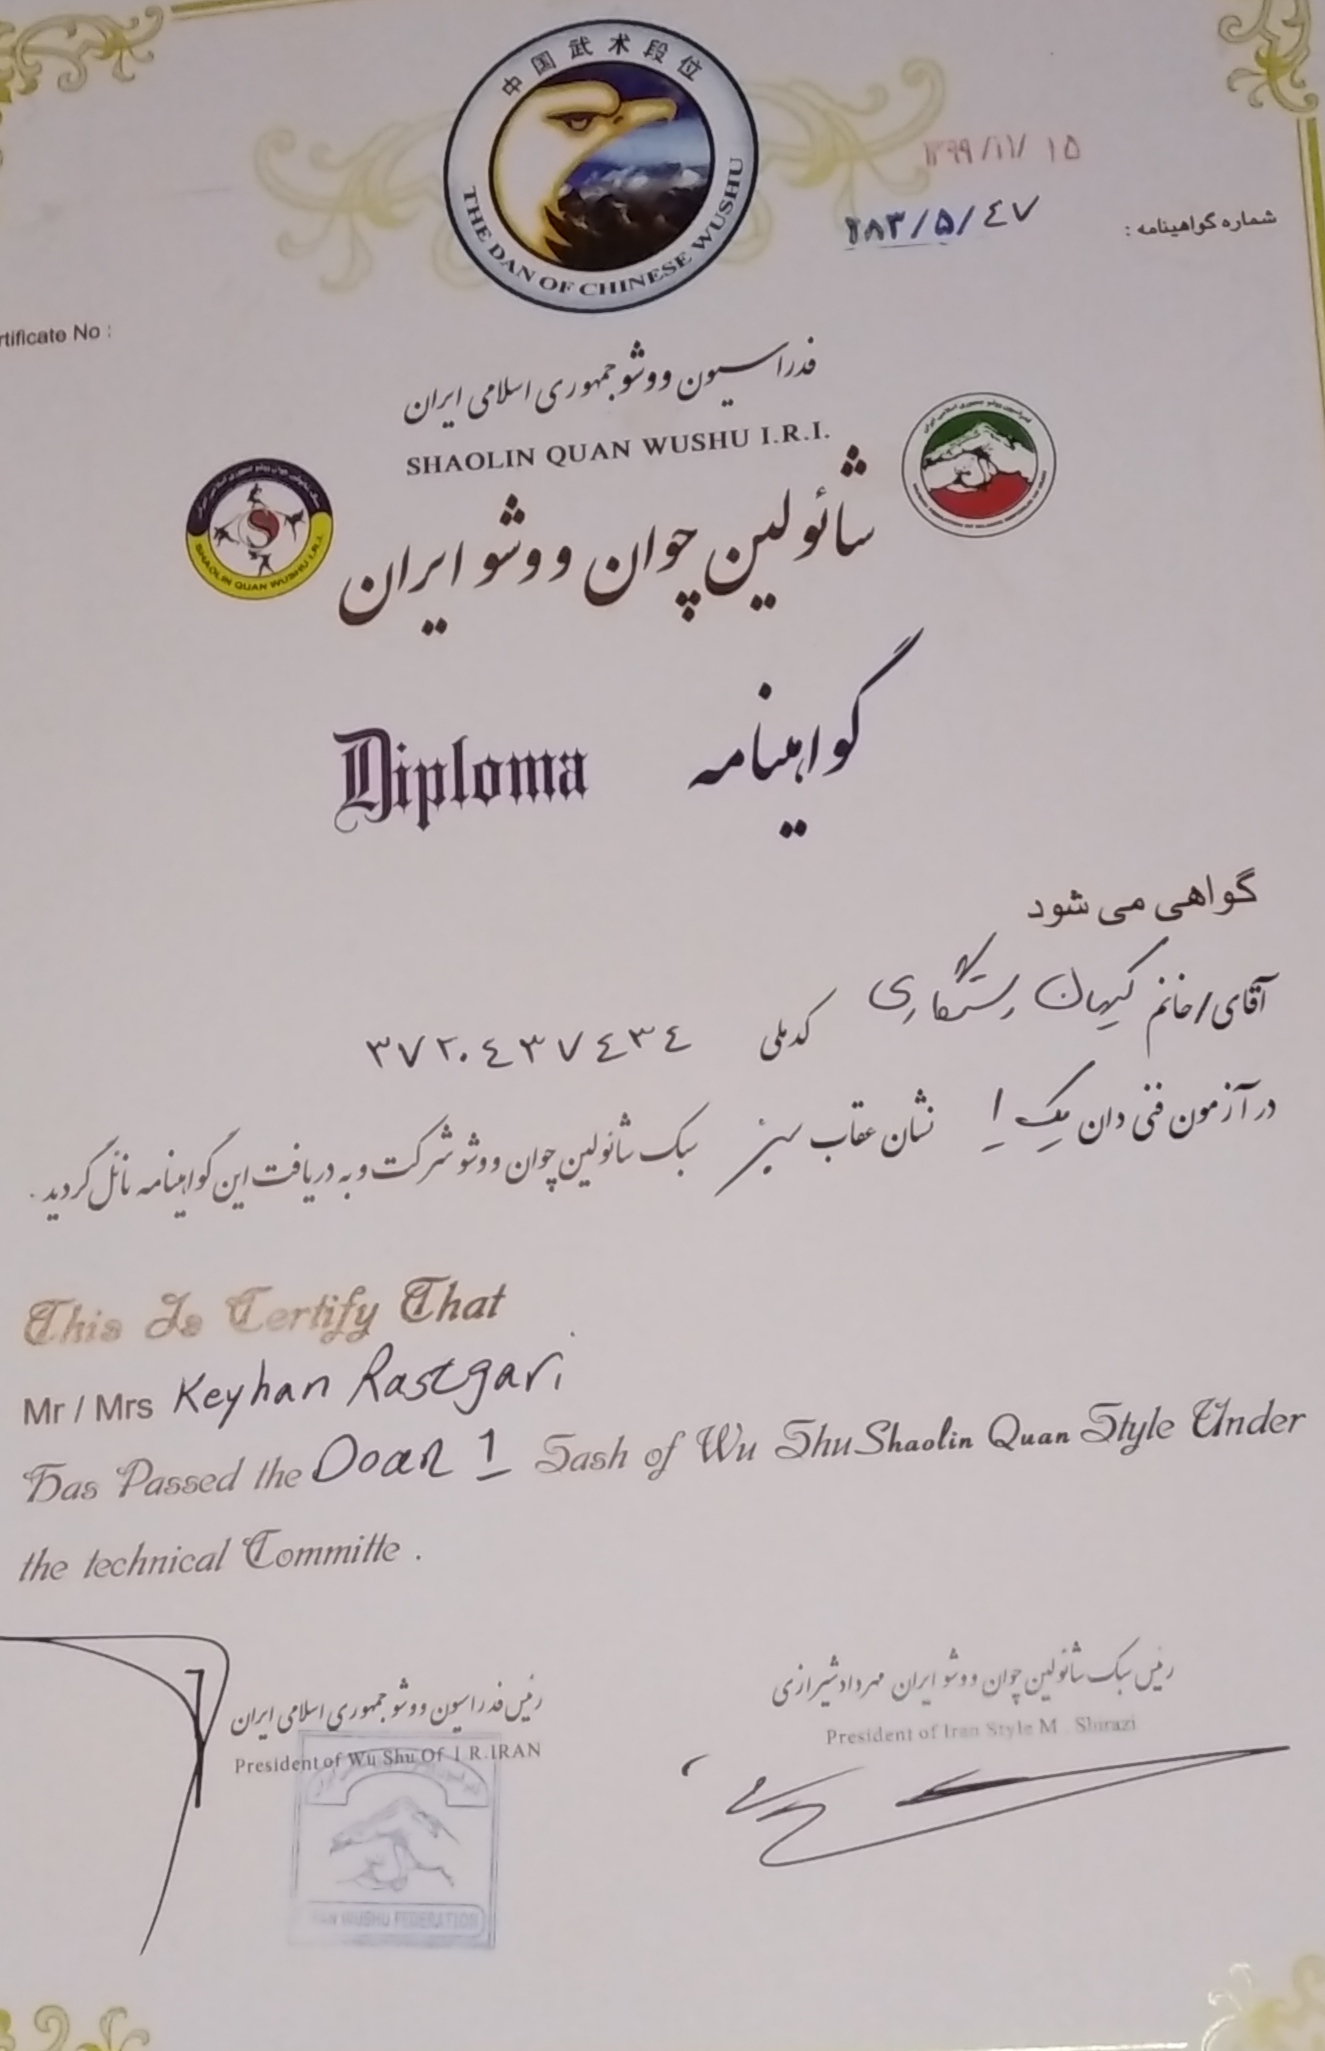 中国武术段位
THE DAN OF CHINESE WUSHU
۱۳۹۹/۱۱/۱۵
شماره گواهینامه : ۲۸۳/۵/۴۷
rtificate No :
فدراسیون ووشو جمهوری اسلامی ایران
SHAOLIN QUAN WUSHU I.R.I.
شائولین چوان ووشو ایران
SHAOLIN QUAN WUSHU I.R.I.
Diploma گواهینامه
گواهی می شود
آقای/خانم کیهان رستگاری کدملی ۳۷۲۰۴۳۷۴۳۴
در آزمون فنی دان یک ۱ نشان عقاب سبز سبک شائولین چوان ووشو شرکت و به دریافت این گواهینامه نائل گردید .
This Is Certify That
Mr / Mrs Keyhan Rastgari
Has Passed the Doan 1 Sash of Wu Shu Shaolin Quan Style Under
the technical Committe .
رئیس سبک شائولین چوان ووشو ایران مهرداد شیرازی
President of Iran Style M . Shirazi
رئیس فدراسیون ووشو جمهوری اسلامی ایران
President of Wu Shu Of I R.IRAN
WUSHU FEDERATION